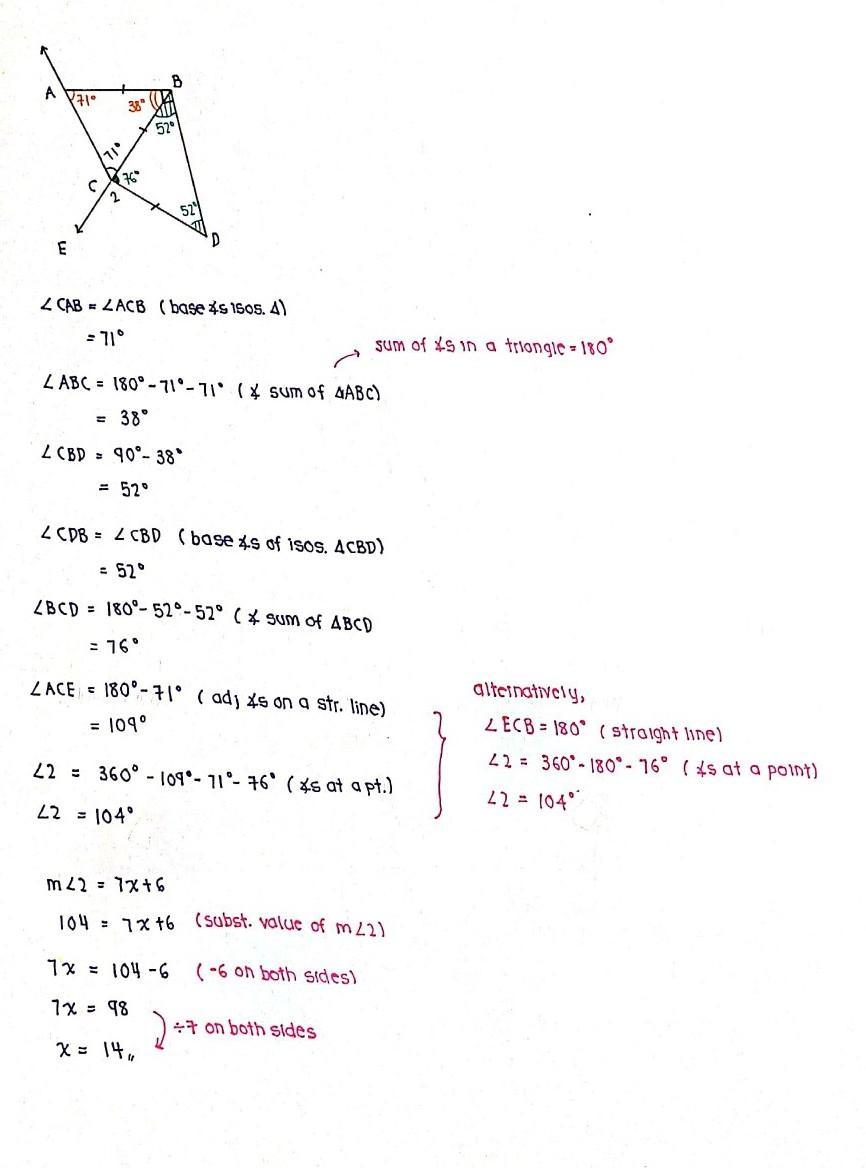 A
B
71°
38°
52°
71°
C
76°
2
52°
E
D
∠CAB = ∠ACB (base ∡s isos. Δ)
= 71°
sum of ∡s in a triangle = 180°
∠ABC = 180° - 71° - 71° (∡ sum of ΔABC)
= 38°
∠CBD = 90° - 38°
= 52°
∠CDB = ∠CBD (base ∡s of isos. ΔCBD)
= 52°
∠BCD = 180° - 52° - 52° (∡ sum of ΔBCD
= 76°
∠ACE = 180° - 71° (adj ∡s on a str. line)
= 109°
∠2 = 360° - 109° - 71° - 76° (∡s at a pt.)
∠2 = 104°
alternatively,
∠ECB = 180° (straight line)
∠2 = 360° - 180° - 76° (∡s at a point)
∠2 = 104°
m∠2 = 7x+6
104 = 7x+6 (subst. value of m∠2)
7x = 104 - 6 (-6 on both sides)
7x = 98
÷7 on both sides
x = 14〃